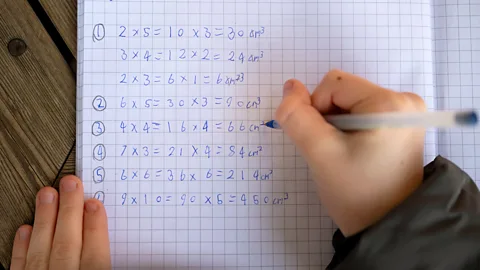 ① 2×5=10×3=30cm³
3×4=12×2=24cm³
2×3=6×1=6cm³
② 6×5=30×3=90cm³
③ 4×4=16×4=66cm
④ 7×3=21×4=84cm³
⑤ 6×6=36×6=214cm³
9×10=90×5=450cm³